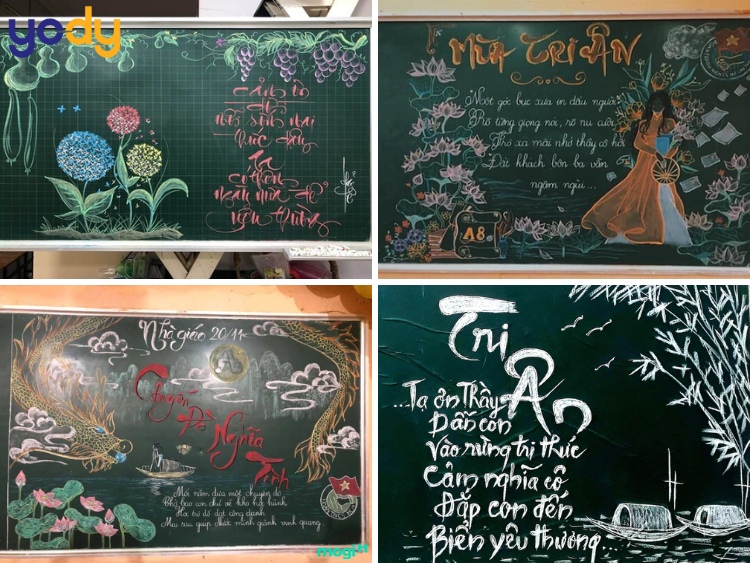 yody
Cảm ơn
đời
mỗi sớm mai
thức dậy
Ta
có thêm
ngày nữa để
yêu thương
MÙA TRI ÂN
góc bục xưa in dấu người
Rõ từng giọng nói, rõ nụ cười
xa mãi nhớ thầy cô hỡi
khách bôn ba vẫn
ngậm ngùi...
A8
Nhà giáo 20/11
Chuyến
Đò
Nghĩa
Tình
Mỗi năm đưa một chuyến đò
Chở bao con chữ về kho học hành
Học trò đỗ đạt công danh
Mai sau giúp nước mình giành vinh quang
mogi
Tri
Ân
...Tạ ơn Thầy
Dẫn con
Vào rừng tri thức
Cảm nghĩa cô
Đắp con đến
Biển yêu thương...